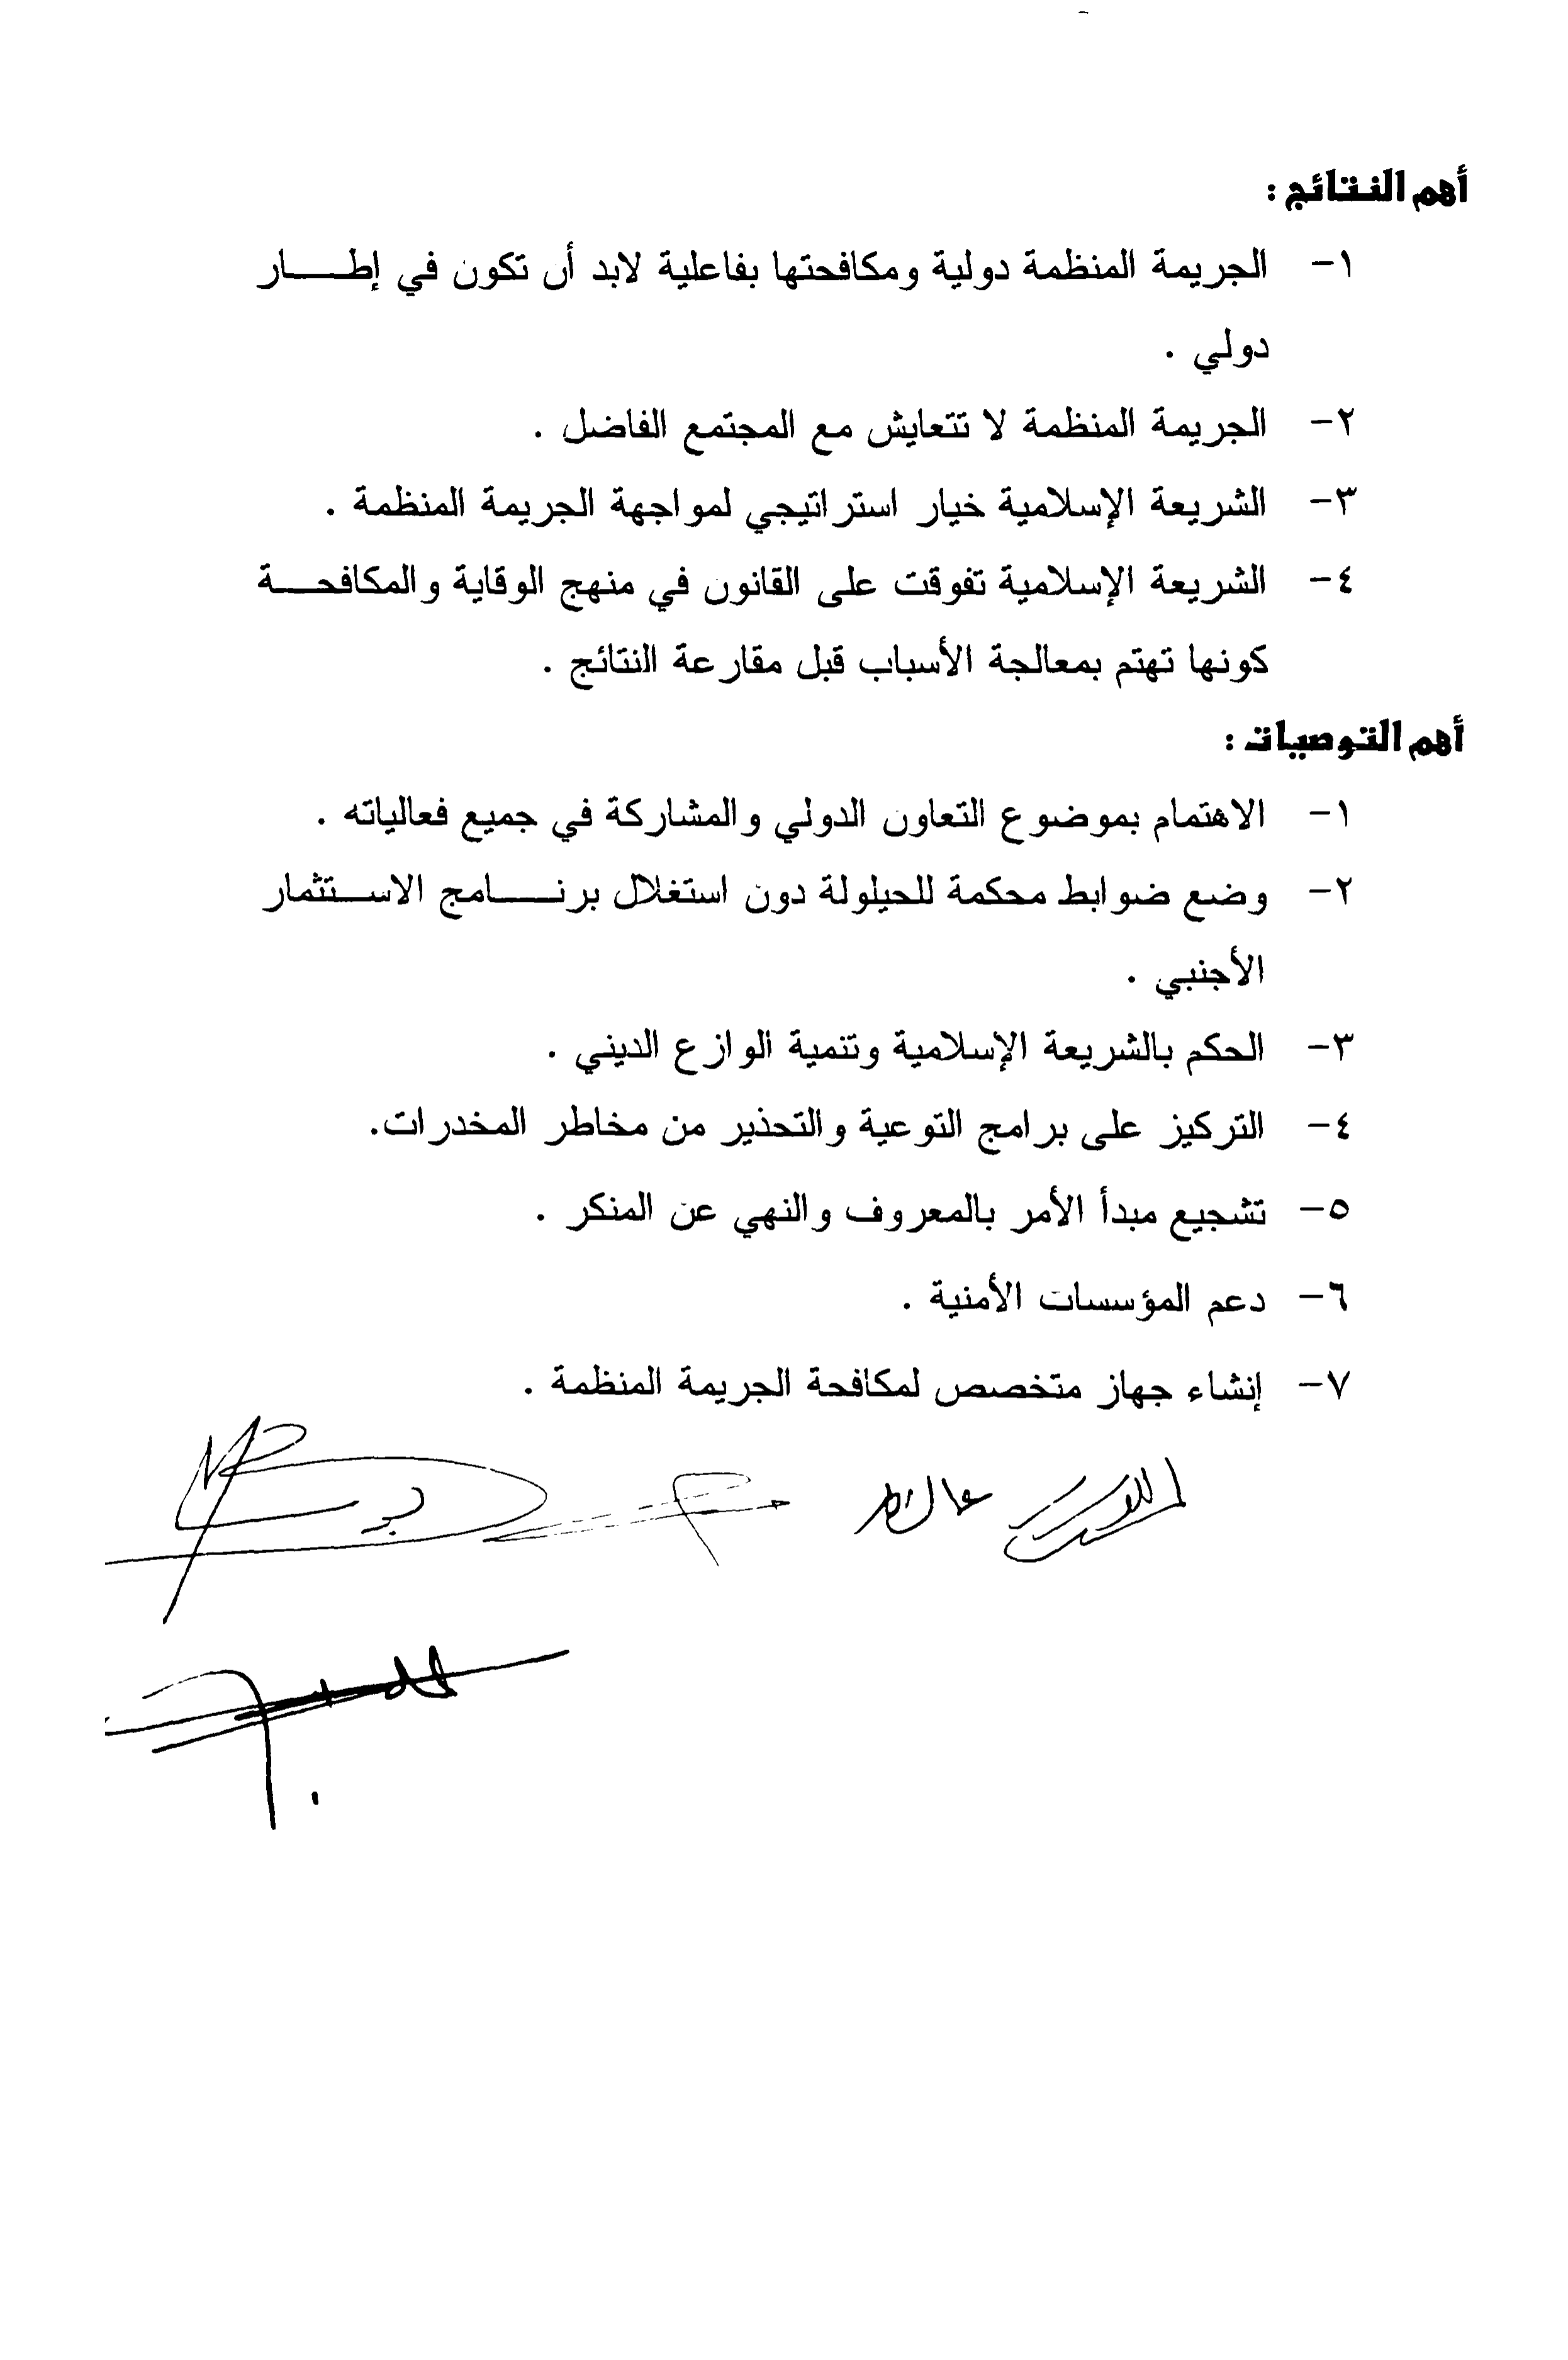 أهم النتائج :
١- الجريمة المنظمة دولية ومكافحتها بفاعلية لابد أن تكون في إطـــار
دولي .
٢- الجريمة المنظمة لا تتعايش مع المجتمع الفاضل .
٣- الشريعة الإسلامية خيار استراتيجي لمواجهة الجريمة المنظمة .
٤- الشريعة الإسلامية تفوقت على القانون في منهج الوقاية والمكافحـــة
كونها تهتم بمعالجة الأسباب قبل مقارعة النتائج .
أهم التوصيات :
١- الاهتمام بموضوع التعاون الدولي والمشاركة في جميع فعالياته .
٢- وضع ضوابط محكمة للحيلولة دون استغلال برنـــامج الاســتثمار
الأجنبي .
٣- الحكم بالشريعة الإسلامية وتنمية الوازع الديني .
٤- التركيز على برامج التوعية والتحذير من مخاطر المخدرات.
٥- تشجيع مبدأ الأمر بالمعروف والنهي عن المنكر .
٦- دعم المؤسسات الأمنية .
٧- إنشاء جهاز متخصص لمكافحة الجريمة المنظمة .